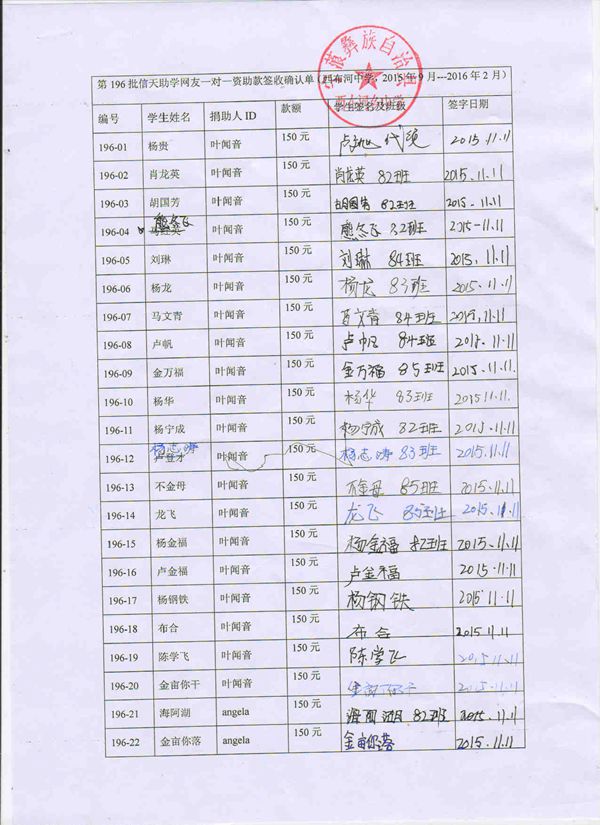 第 196 批信天助学网友一对一资助款签收确认单（西布河中学：2015 年 9 月---2016 年 2 月）
彝族自治县
编号 学生姓名 捐助人 ID 款额 学生签名及班级 签字日期
196-01 杨贵 叶闻音 150 元 代 2015.11.11
196-02 肖龙英 叶闻音 150 元 肖龙英 82班 2015.11.11
196-03 胡国芳 叶闻音 150 元 胡国芳 82班 2015.11.11
196-04 熊冬飞 叶闻音 150 元 熊冬飞 82班 2015-11.11
196-05 刘琳 叶闻音 150 元 刘琳 84班 2015.11.11
196-06 杨龙 叶闻音 150 元 杨龙 83班 2015.11.11
196-07 马文青 叶闻音 150 元 马文青 84班 2015.11.11
196-08 卢帆 叶闻音 150 元 卢帆 84班 2015.11.11
196-09 金万福 叶闻音 150 元 金万福 85班 2015.11.11
196-10 杨华 叶闻音 150 元 杨华 83班 2015.11.11.
196-11 杨宁成 叶闻音 150 元 杨宁成 82班 2015.11.11
196-12 杨志涛 卢登才 叶闻音 150 元 杨志涛 83班 2015.11.11
196-13 不金母 叶闻音 150 元 不金母 85班 2015.11.11
196-14 龙飞 叶闻音 150 元 龙飞 85班 2015.11.11
196-15 杨金福 叶闻音 150 元 杨金福 82班 2015.11.11
196-16 卢金福 叶闻音 150 元 卢金福 2015.11.11
196-17 杨钢铁 叶闻音 150 元 杨钢铁 2015.11.11
196-18 布合 叶闻音 150 元 布合 2015.11.11
196-19 陈学飞 叶闻音 150 元 陈学飞 2015.11.11
196-20 金亩你干 叶闻音 150 元 金亩你干 2015.11.11
196-21 海阿湖 angela 150 元 海阿湖 82班 2015.11.11
196-22 金亩你落 angela 150 元 金亩你落 2015.11.11